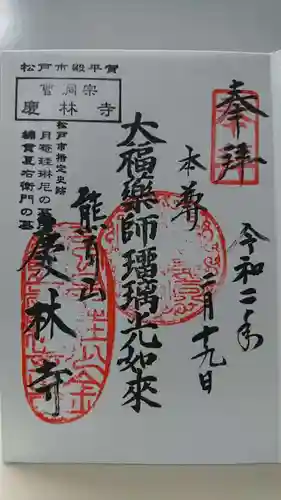 奉拝
令和二年
二月十九日
本尊
大福薬師瑠璃光如来
熊耳山
慶林寺
松戸市殿平賀
曹洞宗
慶林寺
松戸市指定史跡
月庵珪琳尼の墓
綿貫夏右衛門の墓